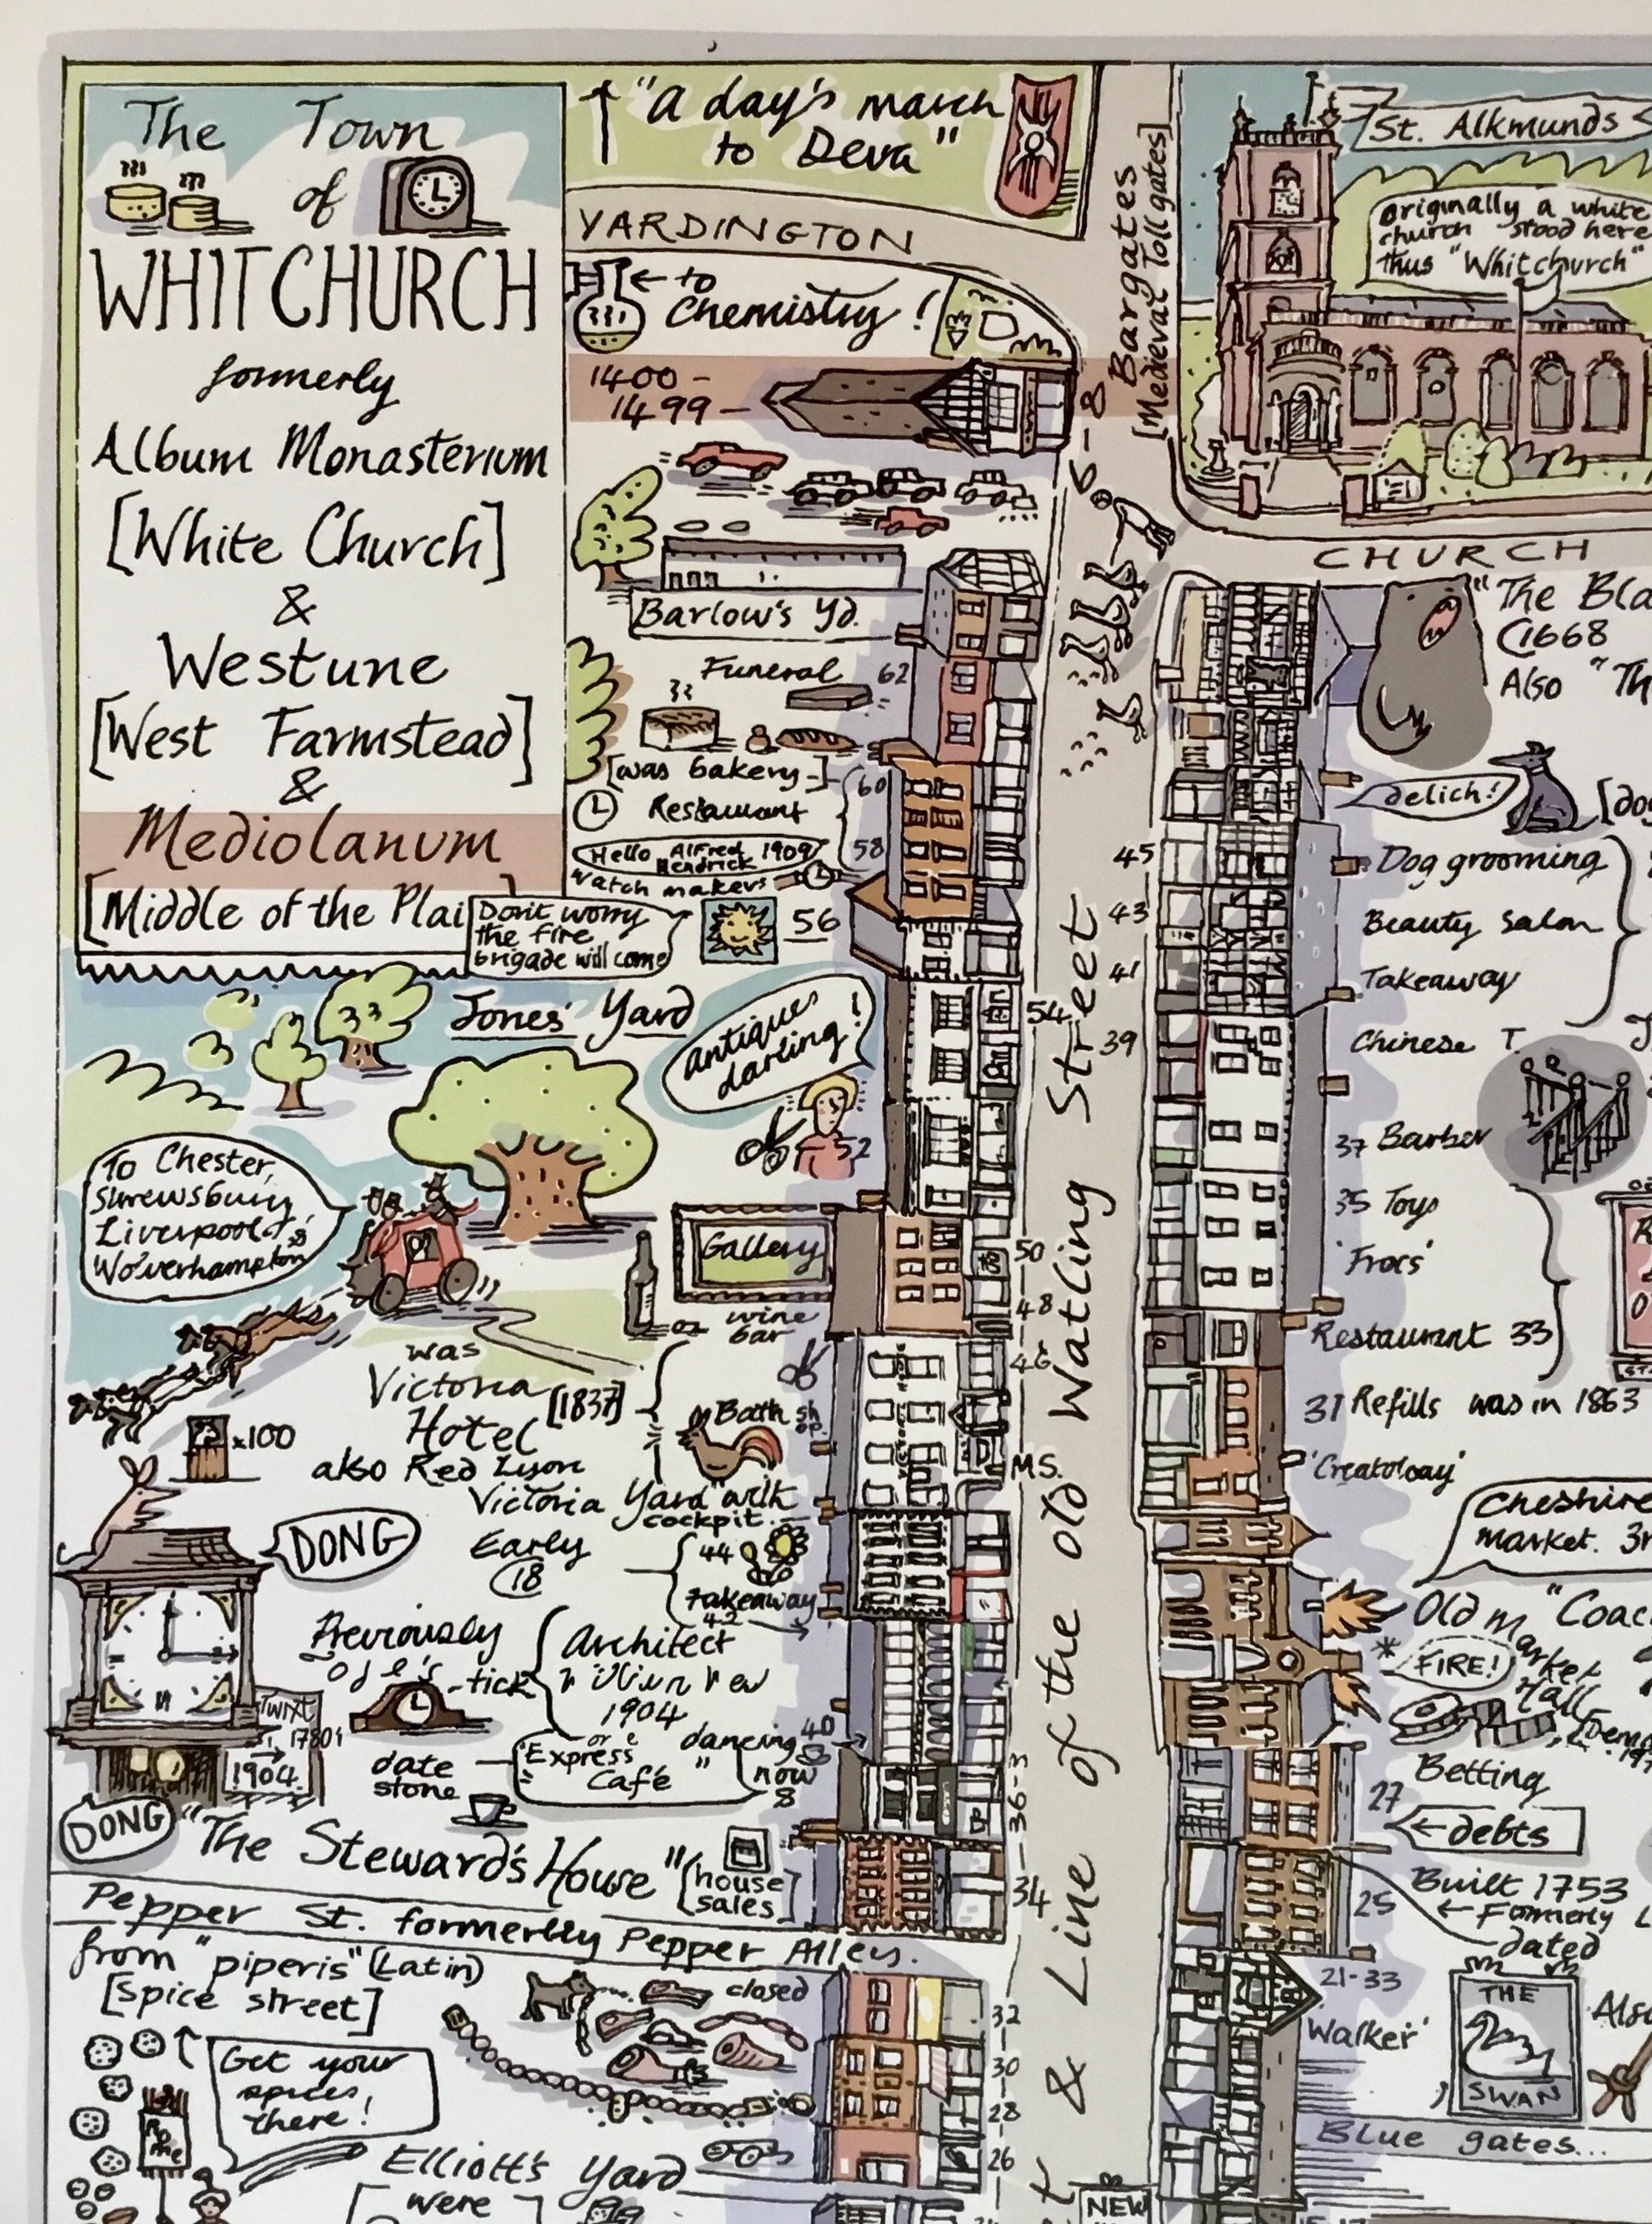 The Town
of
WHITCHURCH
formerly
Album Monasterium
[White Church]
&
Westune
[West Farmstead]
&
Mediolanum
[Middle of the Plai
"A day's march
to Deva"
YARDINGTON
← to
Chemistry!
1400 -
1499 -
6-8
Bargates
[Medieval Toll gates]
St. Alkmunds
originally a white
church stood here
thus "Whitchurch"
CHURCH
Barlow's Yd.
Funeral 62
[was bakery-]
60
Restaurant
58
Hello Alfred 1909
Hendrick
Watch makers
Don't worry
the fire
brigade will come
56
Jones' Yard
Antiques
darling!
54
52
To Chester,
Shrewsbury
Liverpool &
Wolverhampton
Gallery
50
wine
bar
48
46
was
Victoria [1837]
Hotel
also Red Lyon
Bath sh
op.
x100
M.S.
Victoria Yard with
cockpit.
DONG
Early
18
44
Takeaway
42
Previously
tick
Architect
1904
Twixt
1780s
1904
or e
"Express
Café"
dancing
now
8
40
date
stone
36-3
DONG
"The Steward's House"
[house
sales]
34
Pepper St. formerly Pepper Alley.
from "piperis" (Latin)
[spice street]
closed
32
30
28
26
Get your
spices
there!
Rome
Elliott's Yard
were
& Line of the old Watling Street
NEW
"The Bla
(1668
Also "Th
delich!
[dog
45 Dog grooming
43 Beauty Salon
41 Takeaway
39 Chinese T.
37 Barber
35 Toys
'Frocs'
Restaurant 33
31 Refills was in 1863
'Creatoloay'
Cheshire
market. 3r
Old m "Coac
arket
Hall
* FIRE!
[Dem
Betting
27
← debts
Built 1753
25 ← Formerly L
dated
21-33
'Walker'
THE
SWAN
Also
Blue gates...